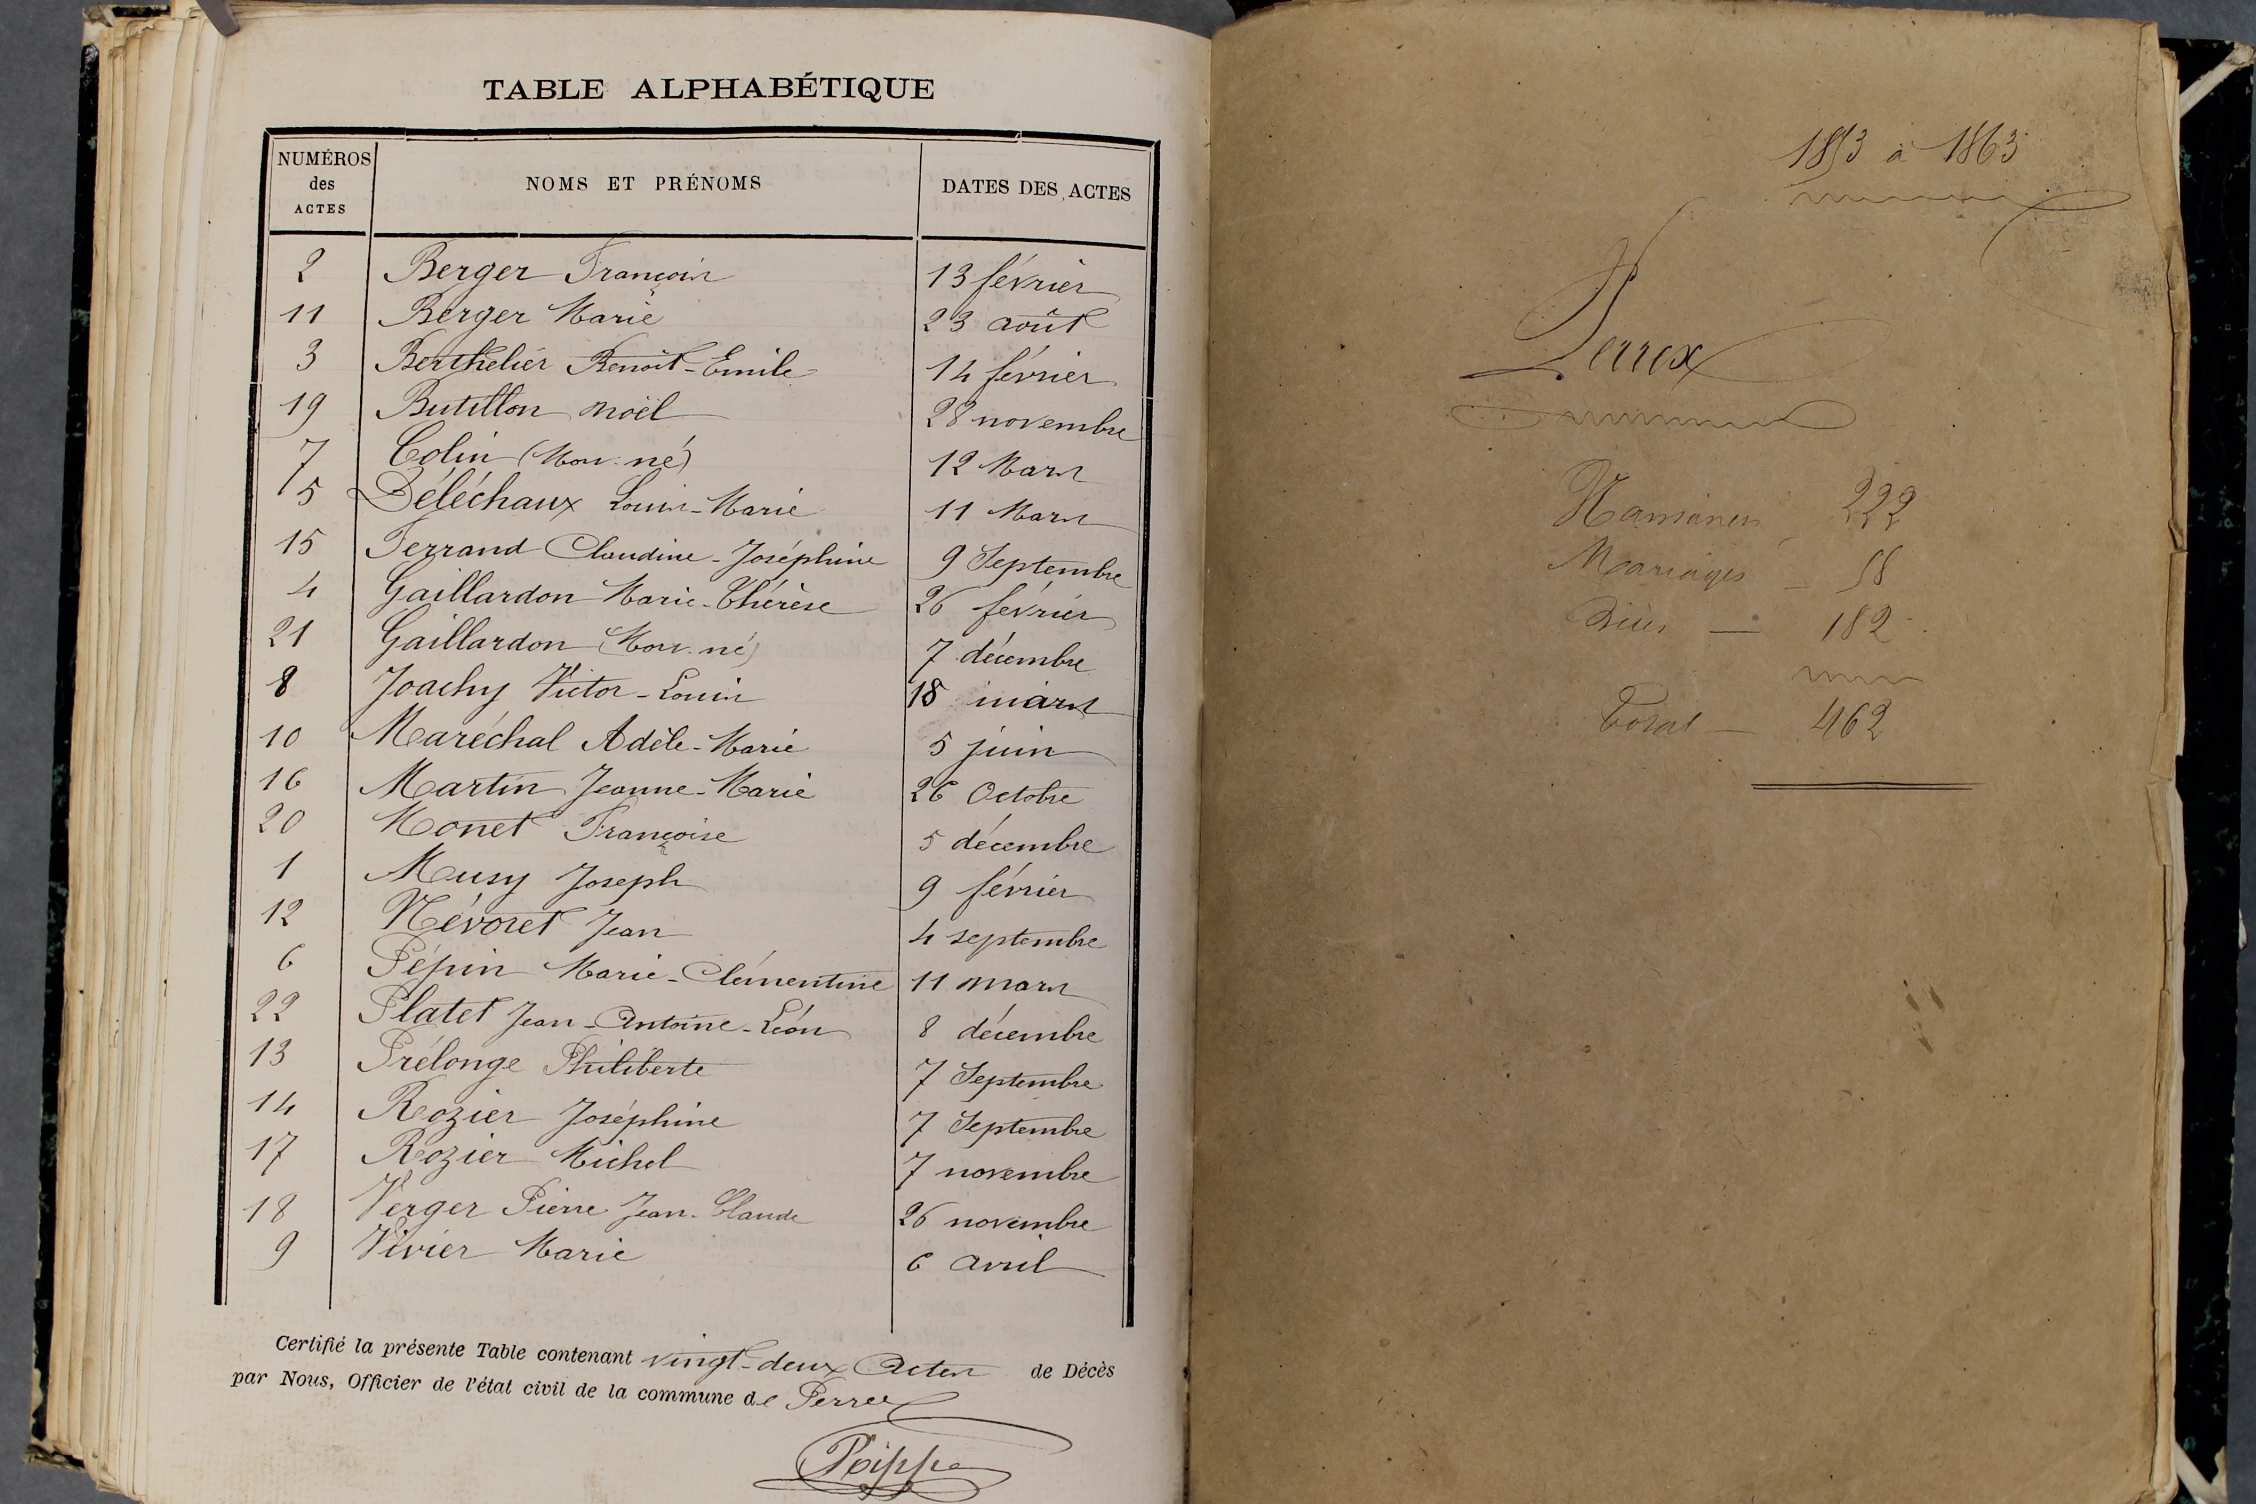 TABLE ALPHABÉTIQUE
NUMÉROS des ACTES NOMS ET PRÉNOMS DATES DES ACTES
2 Berger François 13 février
11 Berger Marie 23 août
3 Berthelier Benoit-Emile 14 février
19 Butillon Noël 28 novembre
7 Colin (Mort-né) 12 Mars
5 Déléchaux Louis-Marie 11 Mars
15 Ferrand Claudine-Joséphine 9 Septembre
4 Gaillardon Marie-Thérèse 26 février
21 Gaillardon (Mort-né) 7 décembre
8 Joachy Victor-Louis 18 mars
10 Maréchal Adèle-Marie 5 juin
16 Martin Jeanne-Marie 26 Octobre
20 Monet Françoise 5 décembre
1 Musy Joseph 9 février
12 Névoret Jean 4 septembre
6 Pépin Marie-Clémentine 11 mars
22 Platet Jean-Antoine-Léon 8 décembre
13 Prélonge Philiberte 7 Septembre
14 Rozier Joséphine 7 Septembre
17 Rozier Michel 7 novembre
18 Verger Pierre Jean-Claude 26 novembre
9 Vivier Marie 6 avril
Certifié la présente Table contenant vingt-deux Actes de Décès
par Nous, Officier de l'état civil de la commune de Perrex
1853 à 1863
Perrex
Naissances 222
Mariages — 58
Décès — 182
Total — 462